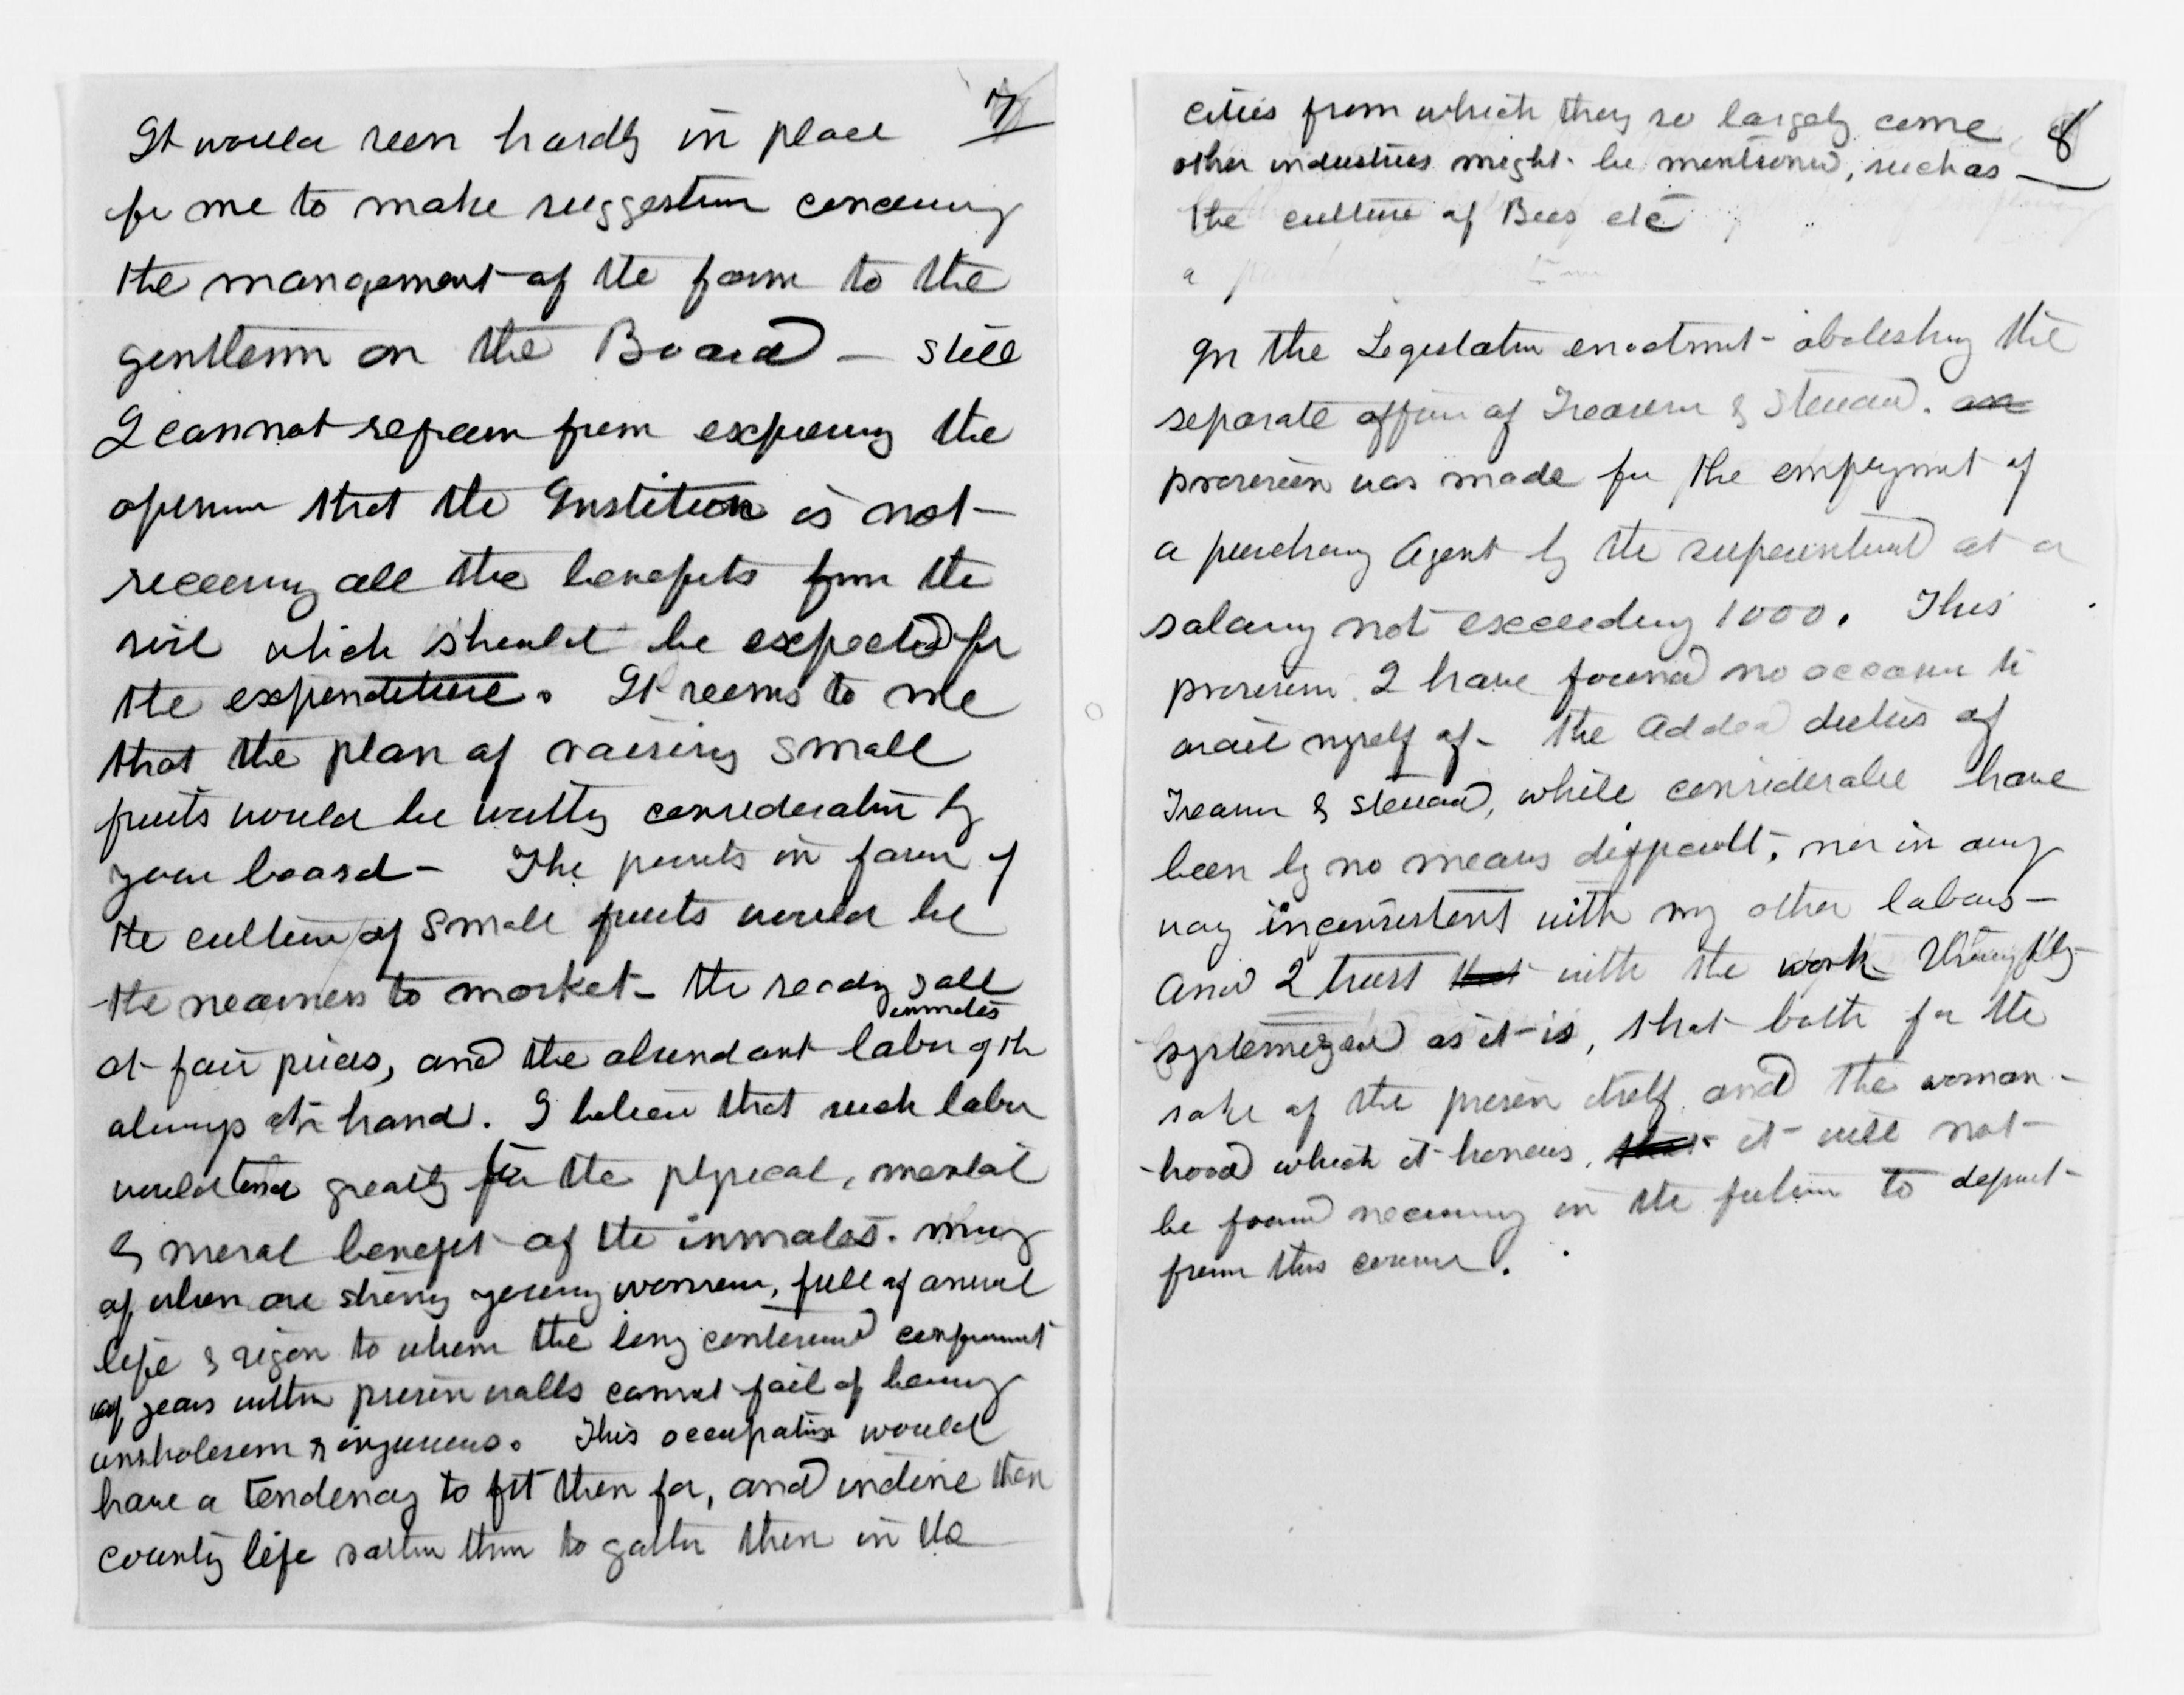 7
It would seem hardly in place
for me to make suggestions concerning
the mangement of the farm to the
gentlemen on the Board — still
I cannot refrain from expressing the
opinion that the Institution is not
receiving all the benefits from the
soil which should be expected for
the expenditure. It seems to me
that the plan of raising small
fruits would be worthy consideration by
your board — The points in favor of
the culture of small fruits would be
the nearness to market — the ready sale
at fair prices, and the abundant labor of the inmates
always at hand. I believe that such labor
would tend greatly for the physical, mental
& moral benefit of the inmates. many
of whom are strong young women, full of animal
life & vigor to whom the long continued confinement
of years within prison walls cannot fail of being
unwholesome & injurious. This occupation would
have a tendency to fit them for, and incline them
country life rather than to gather them in the
8
cities from which they so largely come
other industries might be mentioned, such as
the culture of Bees etc
In the Legislative enactment abolishing the
separate offices of Treasurer & Steward. an
provision was made for the employment of
a purchasing Agent by the superintendent at a
salary not exceeding 1000. This
provision I have found no occasion to
avail myself of — The added duties of
Treasurer & Steward, while considerable have
been by no means difficult, nor in any
way inconsistent with my other labors —
And I trust that with the work thoroughly
systemized as it is, that both for the
sake of the prison itself and the woman-
hood which it honors, that it will not
be found necessary in the future to depart
from this course.